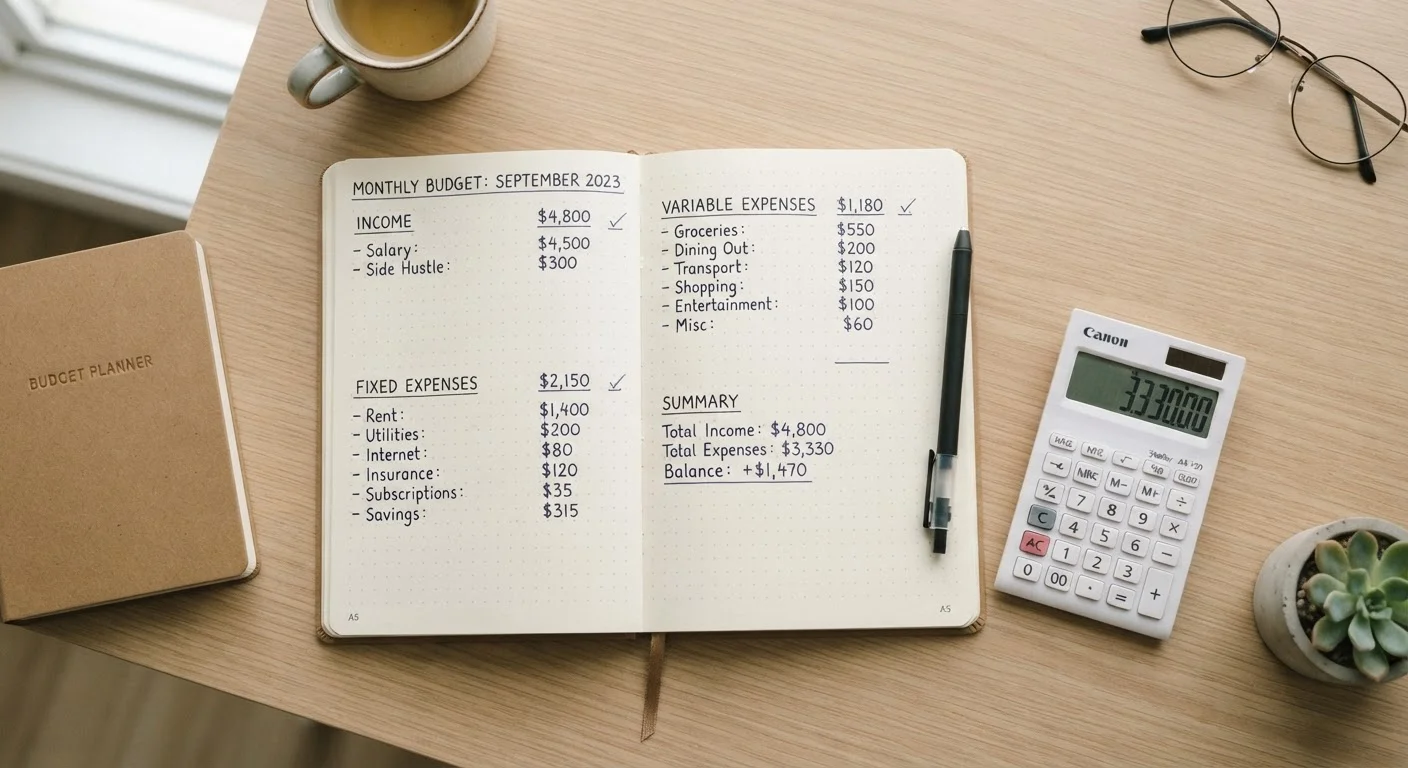 MONTHLY BUDGET: SEPTEMBER 2023
INCOME $4,800 ✓
- Salary: $4,500
- Side Hustle: $300
FIXED EXPENSES $2,150 ✓
- Rent: $1,400
- Utilities: $200
- Internet: $80
- Insurance: $120
- Subscriptions: $35
- Savings: $315
A5
VARIABLE EXPENSES $1,180 ✓
- Groceries: $550
- Dining Out: $200
- Transport: $120
- Shopping: $150
- Entertainment: $100
- Misc: $60
SUMMARY
Total Income: $4,800
Total Expenses: $3,330
Balance: +$1,470
A5
BUDGET PLANNER
Canon
√
MRC M- M+ ÷
% 7 8 9 ×
C 4 5 6 −
AC 1 2 3 +
0 00 · =